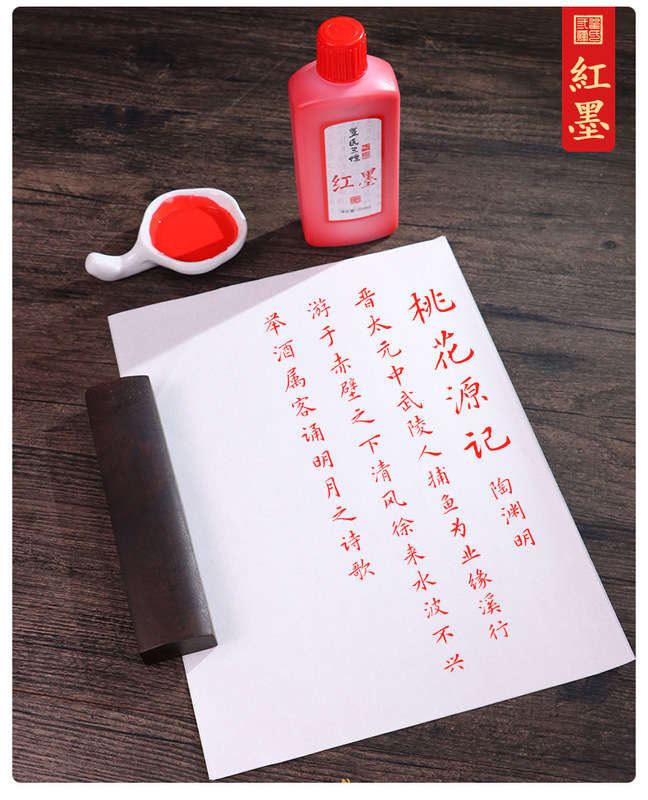 紅墨
红墨
桃花源记
陶渊明
晋太元中武陵人捕鱼为业缘溪行
游于赤壁之下清风徐来水波不兴
举酒属客诵明月之诗歌